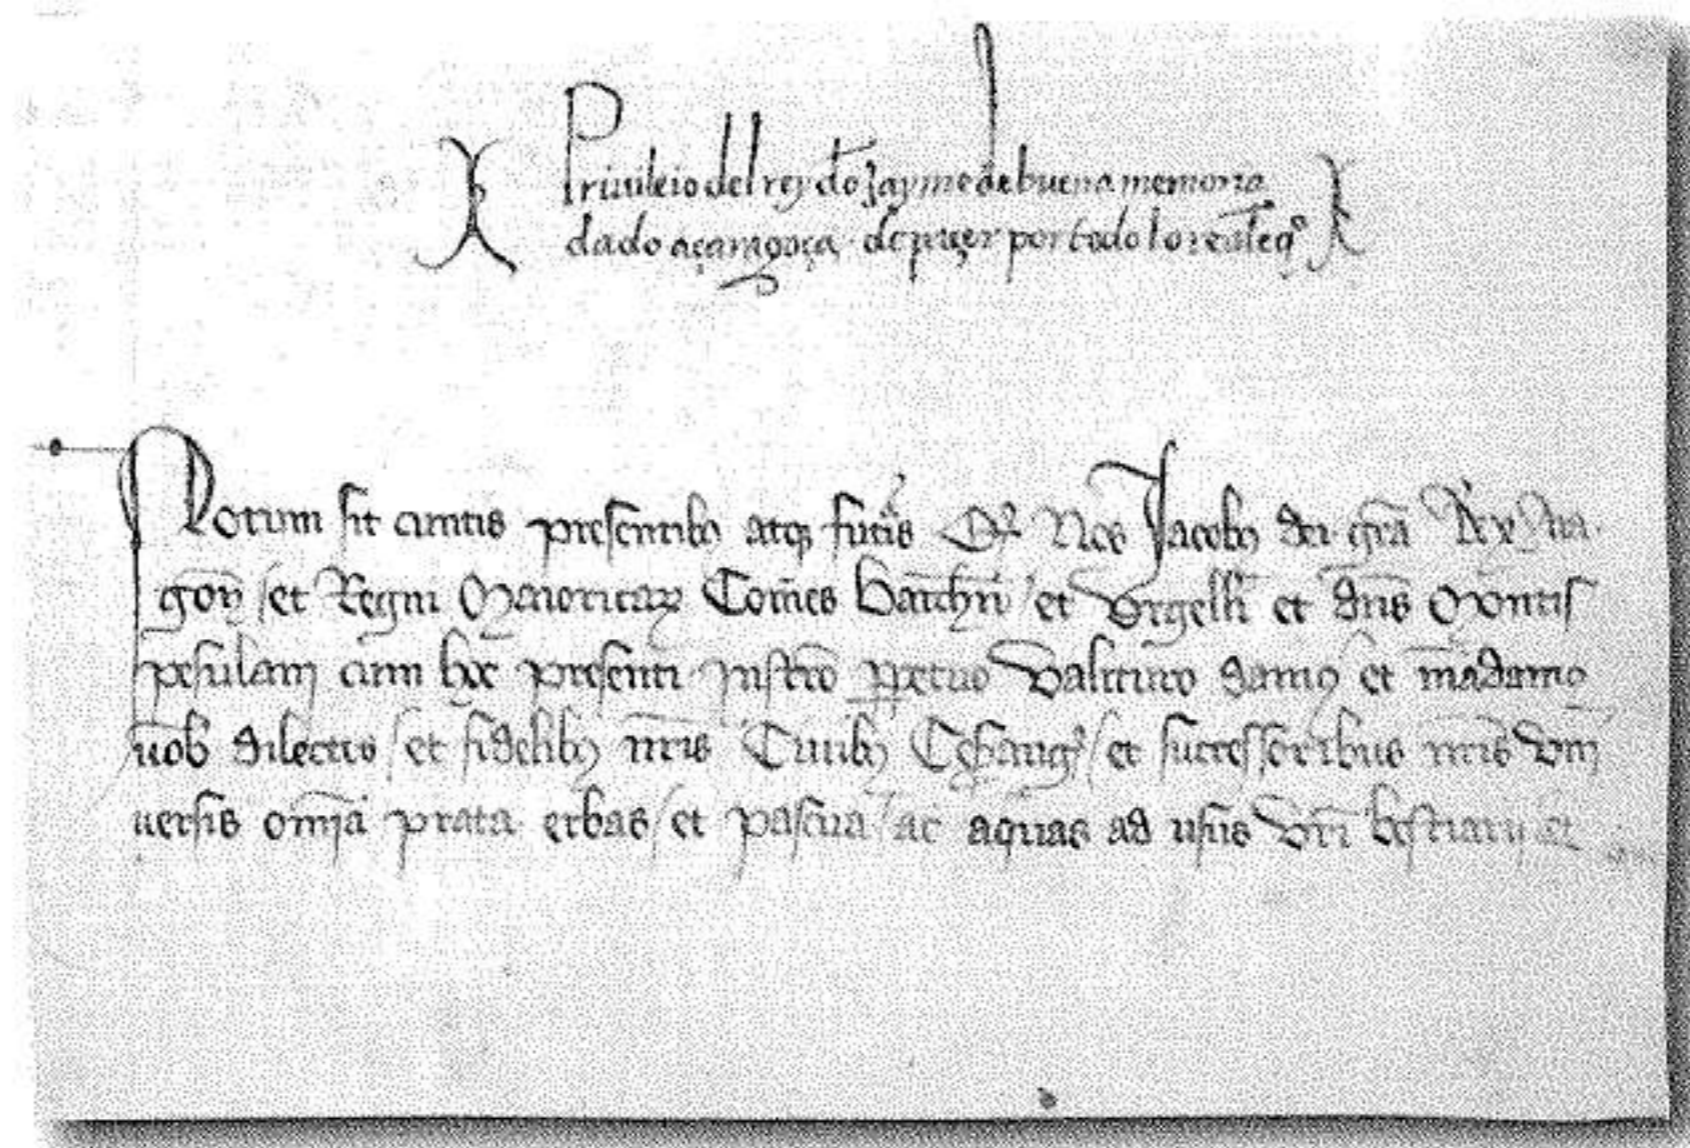 Priuileio del rey dō Jayme de buena memoria
dado a çaragoça de paçer por todo lo realēqº
Notum sit cunctis presentibꝫ atqꝫ futīs Qꝫ Nos Jacobꝫ dei grā Rex Ara
goꝝ / et Regni Maioricaꝝ Comes Barchn̄ / et Vrgelli et dn̄s Montis
pesulani cum hoc presenti instr̄o ꝑpetuo valituro damꝰ et mādamꝰ
uob̄ dilectis / et fidelibꝫ nr̄is Ciuibꝫ Cesarauḡ / et successoribus vr̄is vni
uersis om̄ia prata erbas / et pascua / ac aquas ad usus vr̄i bestiarij et